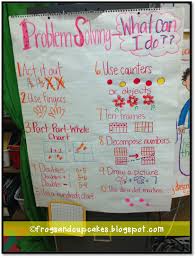 Problem Solving
What Can
I do??
1. Act it out
2. Use fingers
3. Part-Part-Whole
Chart
Doubles
Doubles +1
Doubles
Use a hundreds chart
6. Use counters
or objects
7. Ten-frames
8. Decompose numbers
9. Draw a picture
©frogsandcupcakes.blogspot.com